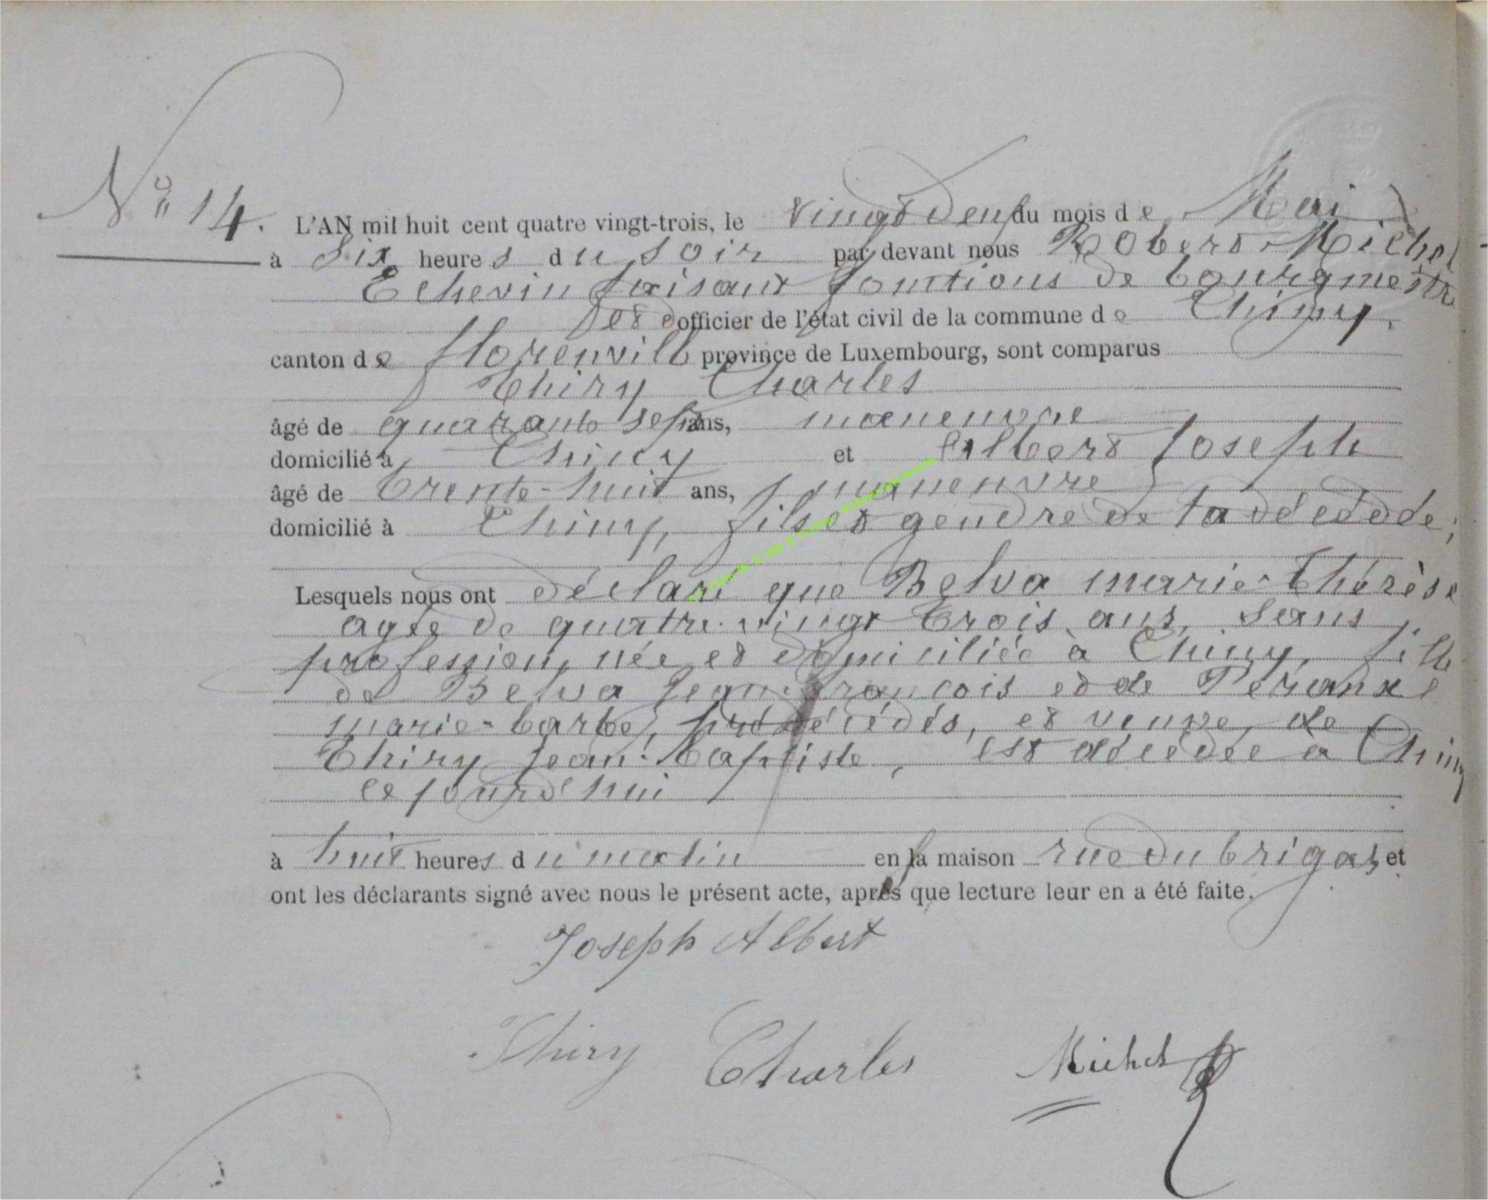 No 14.
L'AN mil huit cent quatre vingt-trois, le vingt deux du mois de Mai
à Six heures du soir par devant nous Robert Michel
Echevin faisant fonctions de bourgmestre
et officier de l'état civil de la commune de Chiny,
canton de florenville province de Luxembourg, sont comparus
Thiry Charles
âgé de quarante sept ans, manœuvre
domicilié à Chiny et Albert Joseph
âgé de trente-huit ans, manœuvre
domicilié à Chiny, fils et gendre de la décédée;
Lesquels nous ont déclaré que Belva marie-Thérèse
agée de quatre-vingt trois ans, sans
profession, née et domiciliée à Chiny, fille
de Belva Jean françois et de
marie-barbe, prédécédés, et veuve de
Thiry Jean-baptiste, est décédée à Chiny
cejourd'hui
à huit heures du matin en sa maison rue du et
ont les déclarants signé avec nous le présent acte, après que lecture leur en a été faite.
Joseph Albert
Thiry Charles Michel